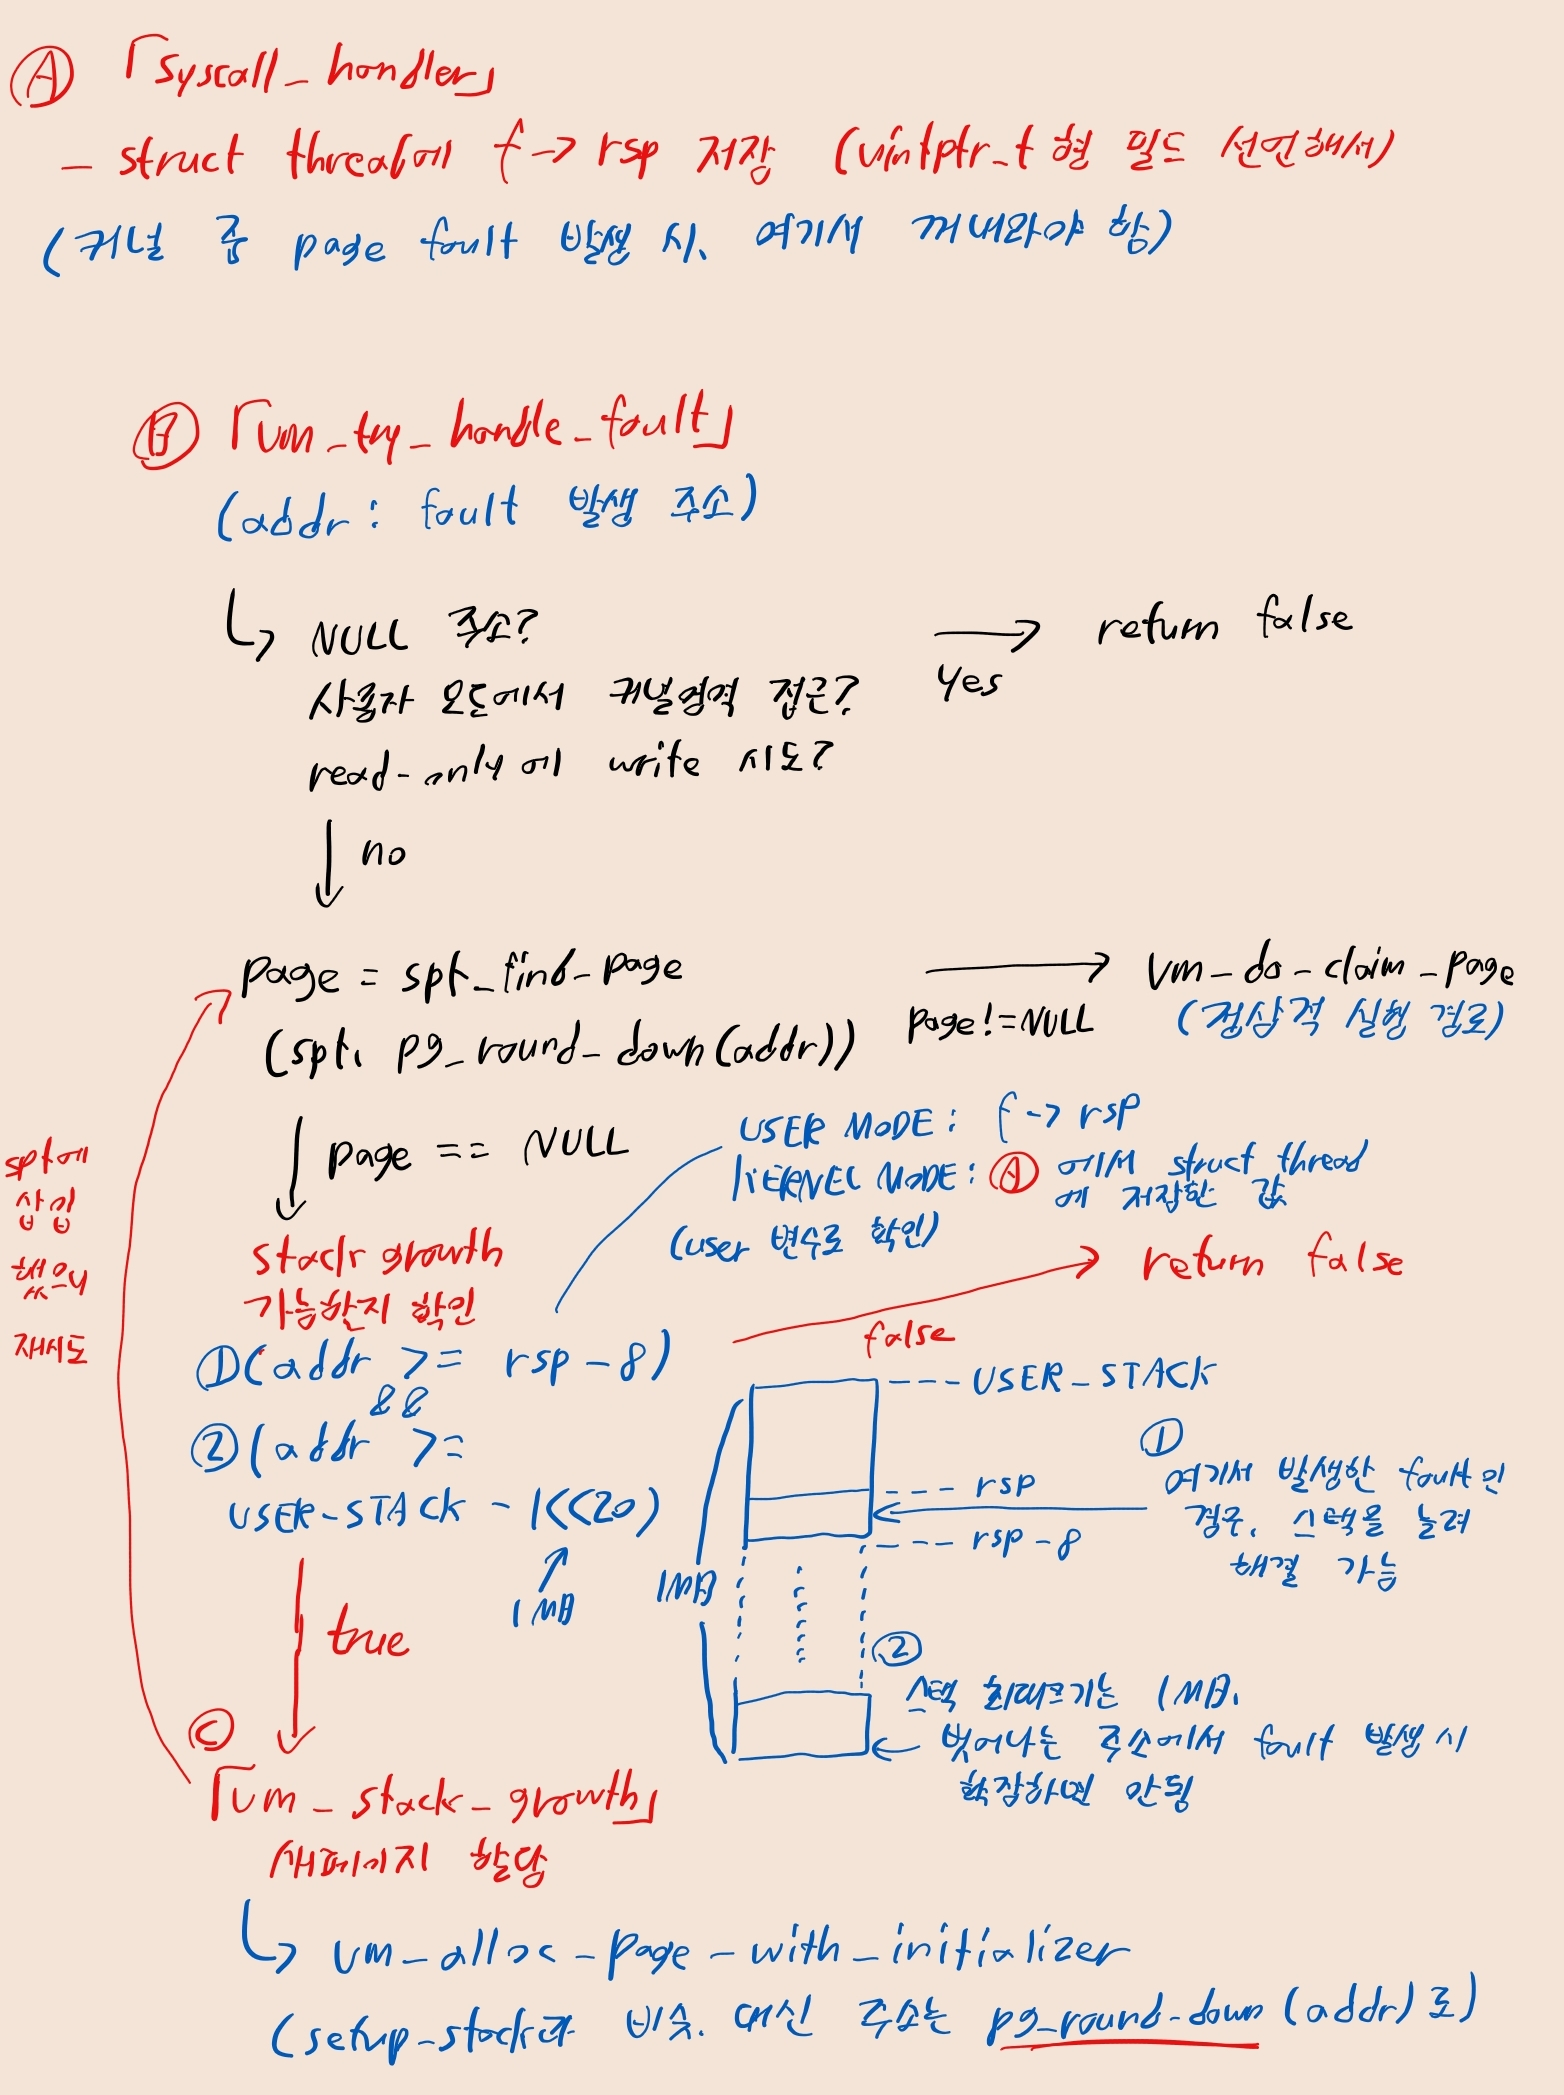 Ⓐ 「syscall_handler」
- struct thread에 f->rsp 저장 (uintptr_t형 필드 선언해서)
(커널 중 page fault 발생 시, 여기서 꺼내와야 함)
Ⓑ 「vm_try_handle_fault」
(addr: fault 발생 주소)
↳ NULL 주소?
사용자 모드에서 커널영역 접근?
read-only에 write 시도?
→ return false
Yes
↓ no
page = spt_find_page
(spt, pg_round_down(addr))
→ vm_do_claim_page
page!=NULL (정상적 실행 경로)
↓ page == NULL
USER MODE: f->rsp
KERNEL MODE: Ⓐ에서 struct thread
에 저장한 값
(user 변수로 확인)
spt에
삽입
했으니
재시도
stack growth
가능한지 확인
→ return false
false
①(addr >= rsp-8)
&&
②(addr >=
USER_STACK - 1<<20)
1MB
--- USER_STACK
--- rsp
--- rsp-8
1MB
①
여기서 발생한 fault인
경우, 스택을 늘려
해결 가능
②
스택 최대크기는 1MB.
벗어나는 주소에서 fault 발생 시
확장하면 안됨
true
Ⓒ
「vm_stack_growth」
새페이지 할당
↳ vm_alloc_page_with_initializer
(setup_stack과 비슷. 대신 주소는 pg_round_down(addr)로)